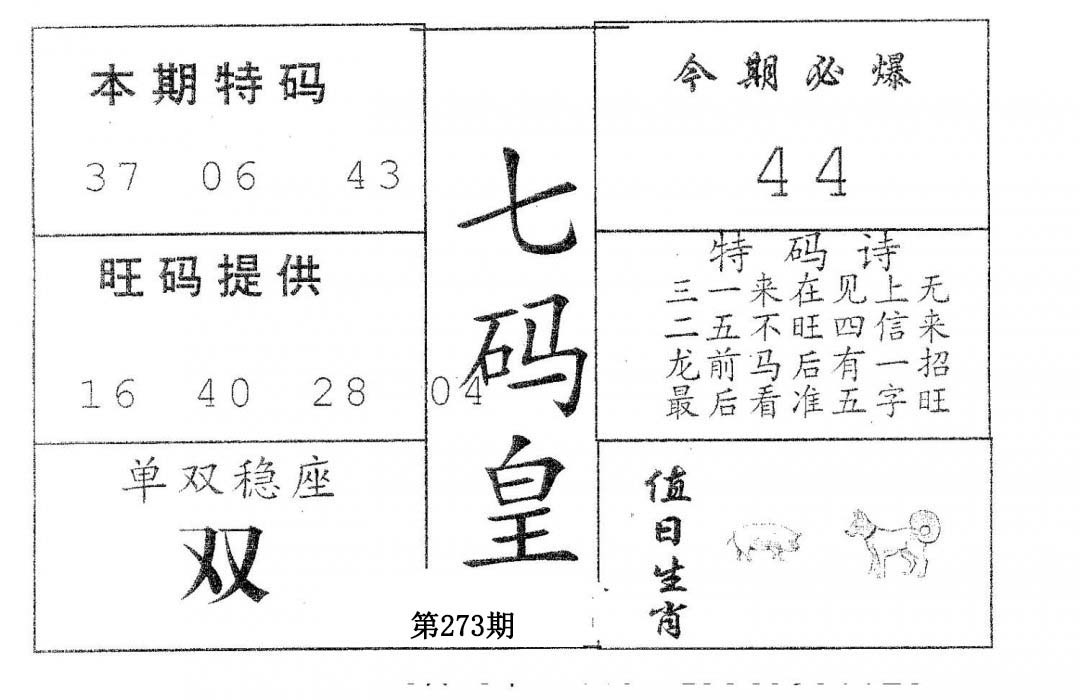 本期特码
37 06 43
旺码提供
16 40 28 04
单双稳座
双
七码皇
第273期
今期必爆
44
特码诗
三一来在见上无
二五不旺四信来
龙前马后有一招
最后看准五字旺
值日生肖